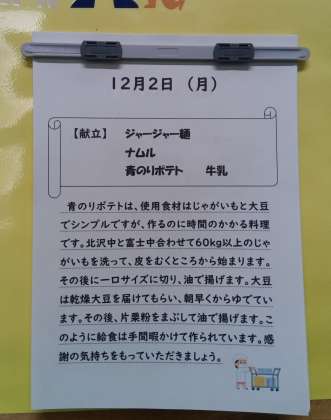 12月2日 (月)
【献立】 ジャージャー麺
ナムル
青のりポテト 牛乳
青のりポテトは、使用食材はじゃがいもと大豆
でシンプルですが、作るのに時間のかかる料理
です。北沢中と富士中合わせて60kg以上のじゃ
がいもを洗って、皮をむくところから始まります。
その後に一口サイズに切り、油で揚げます。大豆
は乾燥大豆を届けてもらい、朝早くからゆでてい
ます。その後、片栗粉をまぶして油で揚げます。こ
のように給食は手間暇かけて作られています。感
謝の気持ちをもっていただきましょう。